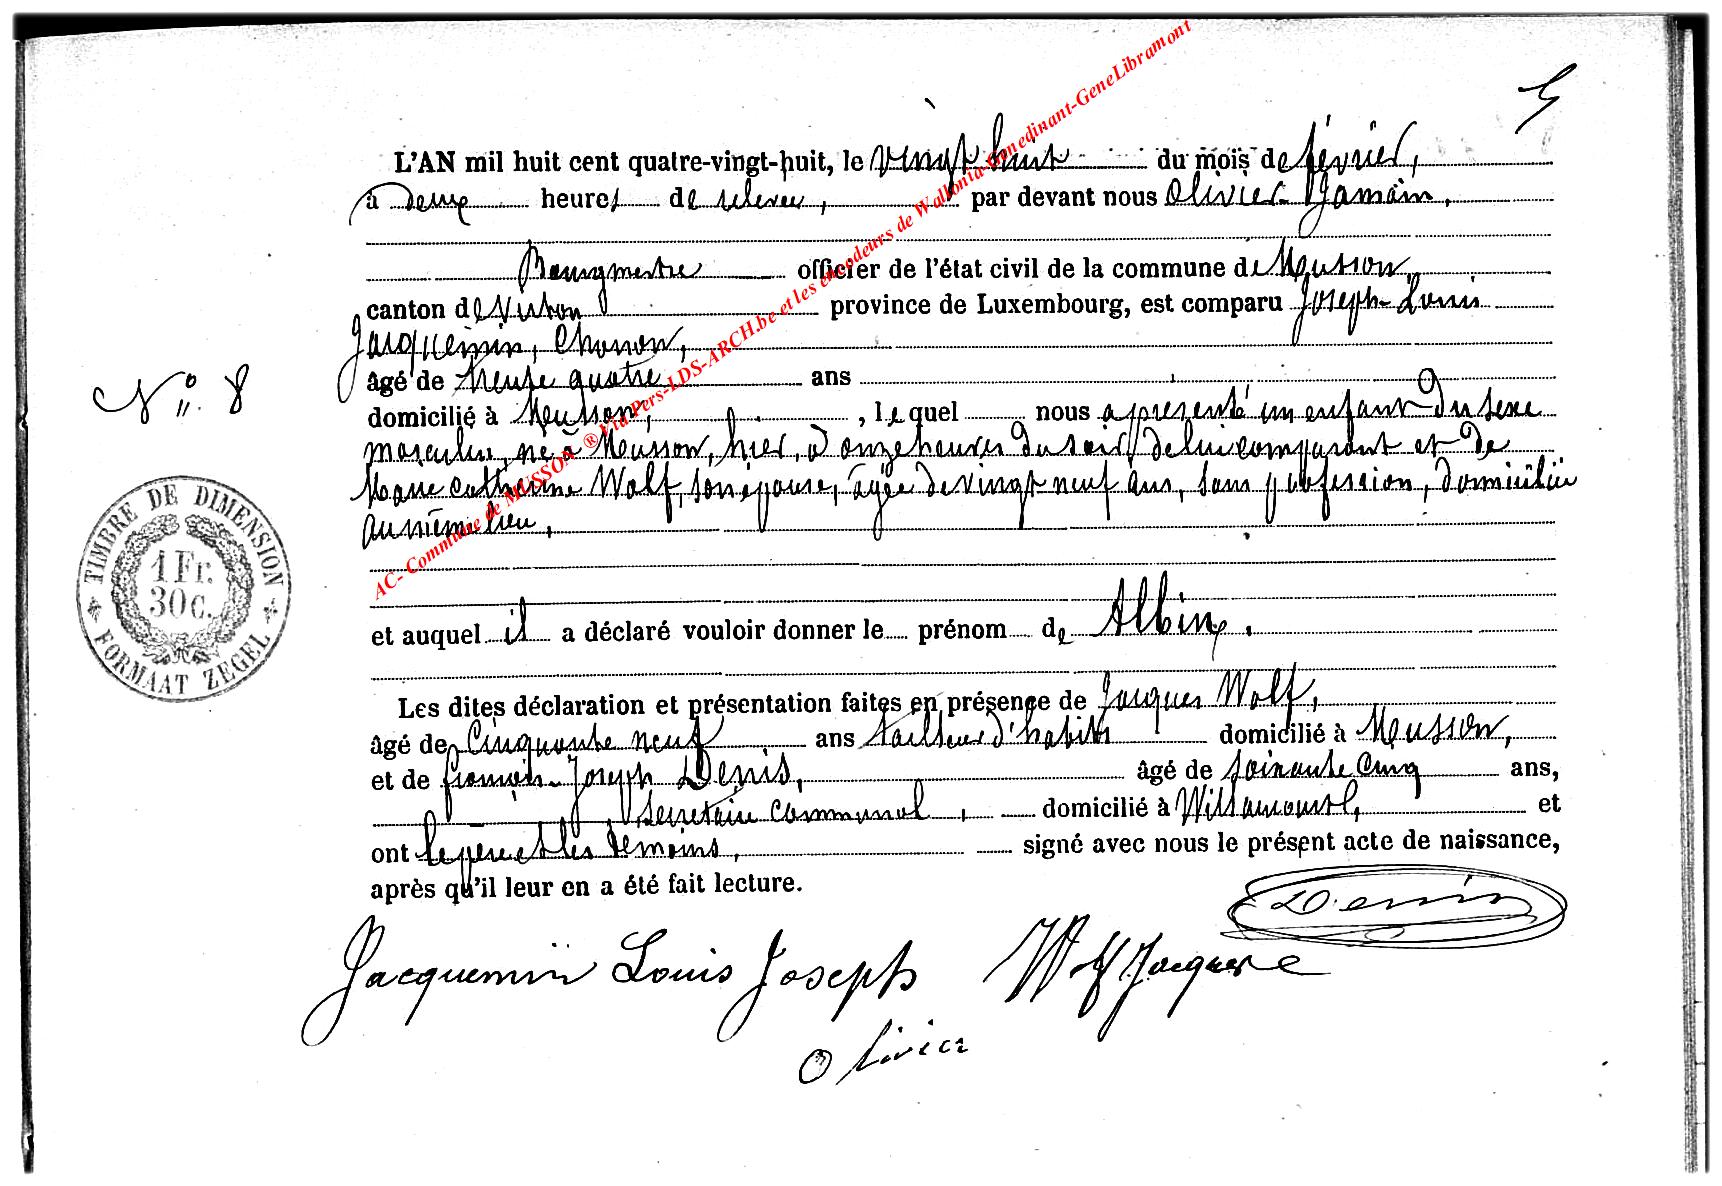 5
L'AN mil huit cent quatre-vingt-huit, le vingt huit du mois de février,
à deux heures de relevée, par devant nous Olivier Jamain,
Bourgmestre officier de l'état civil de la commune de Musson,
canton de Virton province de Luxembourg, est comparu Joseph-Louis
Jacquemin, Chonon,
âgé de trente quatre ans
N° 8
domicilié à Musson, , lequel nous a présenté un enfant du sexe
masculin, né à Musson, hier, à onze heures du soir, de lui comparant et de
Marie Catherine Wolf, son épouse, âgée de vingt neuf ans, sans profession, domiciliée
au même lieu,
TIMBRE DE DIMENSION
1 Fr.
30 C.
FORMAAT ZEGEL
et auquel il a déclaré vouloir donner le prénom de Albin.
Les dites déclaration et présentation faites en présence de Jacques Wolf,
âgé de Cinquante neuf ans tailleur d'habits domicilié à Musson,
et de françois-Joseph Denis, âgé de soixante cinq ans,
secrétaire communal, domicilié à Willancourt, et
ont le père et les témoins, signé avec nous le présent acte de naissance,
après qu'il leur en a été fait lecture.
Denis
Jacquemin Louis Joseph Wolf Jacques
Olivier
AC- Commune de MUSSON ® Via Pers-LDS-ARCH.be et les encodeurs de Wallonia-Genedinant-GeneLibramont